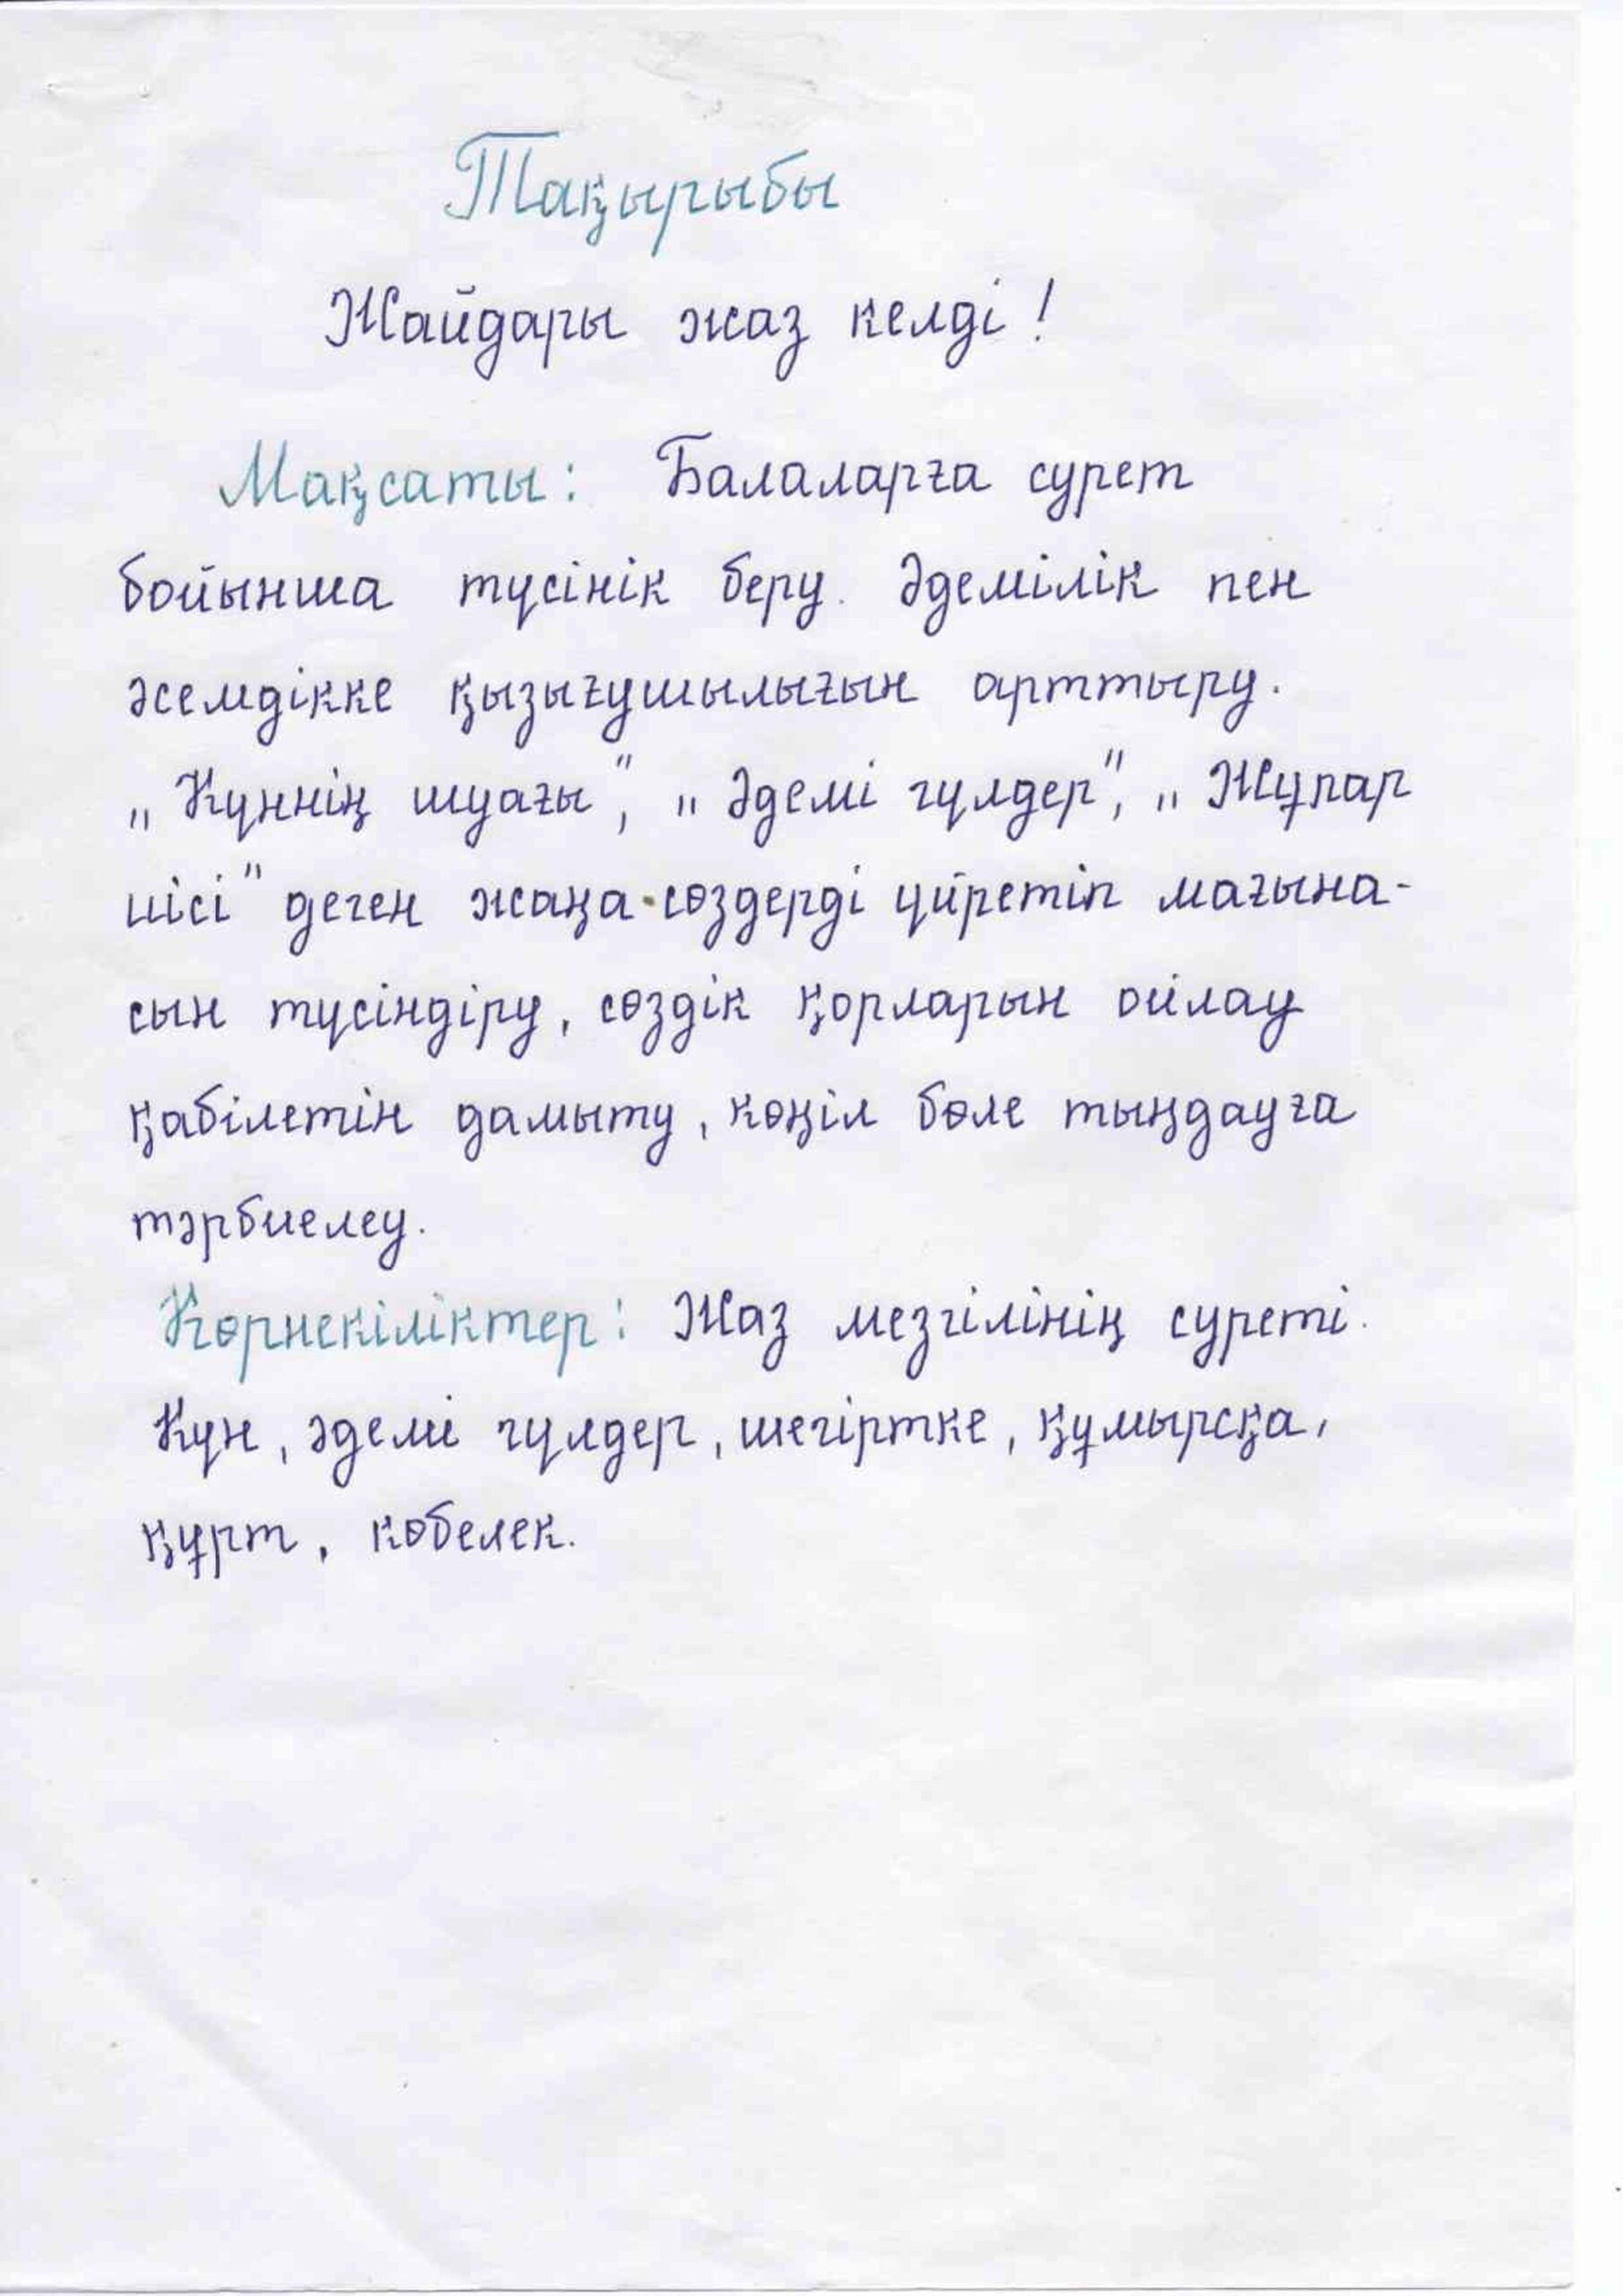 Тақырыбы
Жайдары жаз келді!
Мақсаты: Балаларға сурет
бойынша түсінік беру. Әдемілік пен
әсемдікке қызығушылығын арттыру.
„Күннің шуағы", „Әдемі гүлдер", „Жұпар
иісі" деген жаңа сөздерді үйретіп мағына-
сын түсіндіру, сөздік қорларын ойлау
қабілетін дамыту, көңіл бөле тыңдауға
тәрбиелеу.
Көрнекіліктер: Жаз мезгілінің суреті.
Күн, әдемі гүлдер, шегіртке, құмырсқа,
құрт, көбелек.